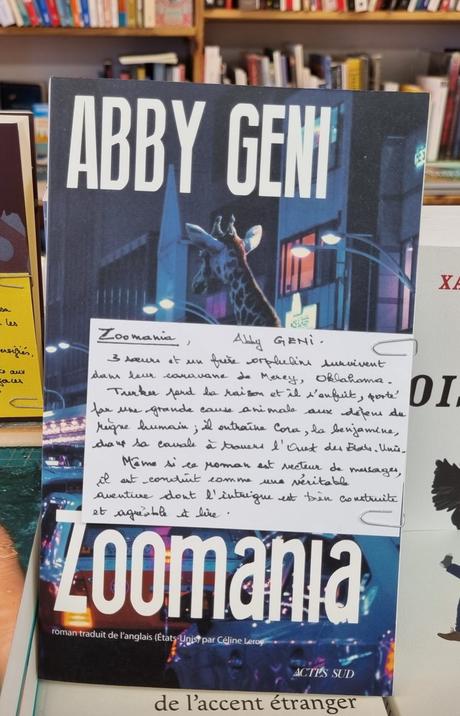 ABBY GENI
Zoomania, Abby GENI.
3 sœurs et un frère orphelins survivent
dans leur caravane de Mercy, Oklahoma.
Tucker perd la raison et il s'enfuit, porté
par une grande cause animale aux dépens du
règne humain; il entraîne Cora, la benjamine,
dans sa cavale à travers l'Ouest des États-Unis.
Même si ce roman est vecteur de messages,
il est construit comme une véritable
aventure dont l'intrigue est bien construite
et agréable à lire.
Zoomania
roman traduit de l'anglais (États-Unis) par Céline Leroy
ACTES SUD
de l'accent étranger
XA
OIS
les